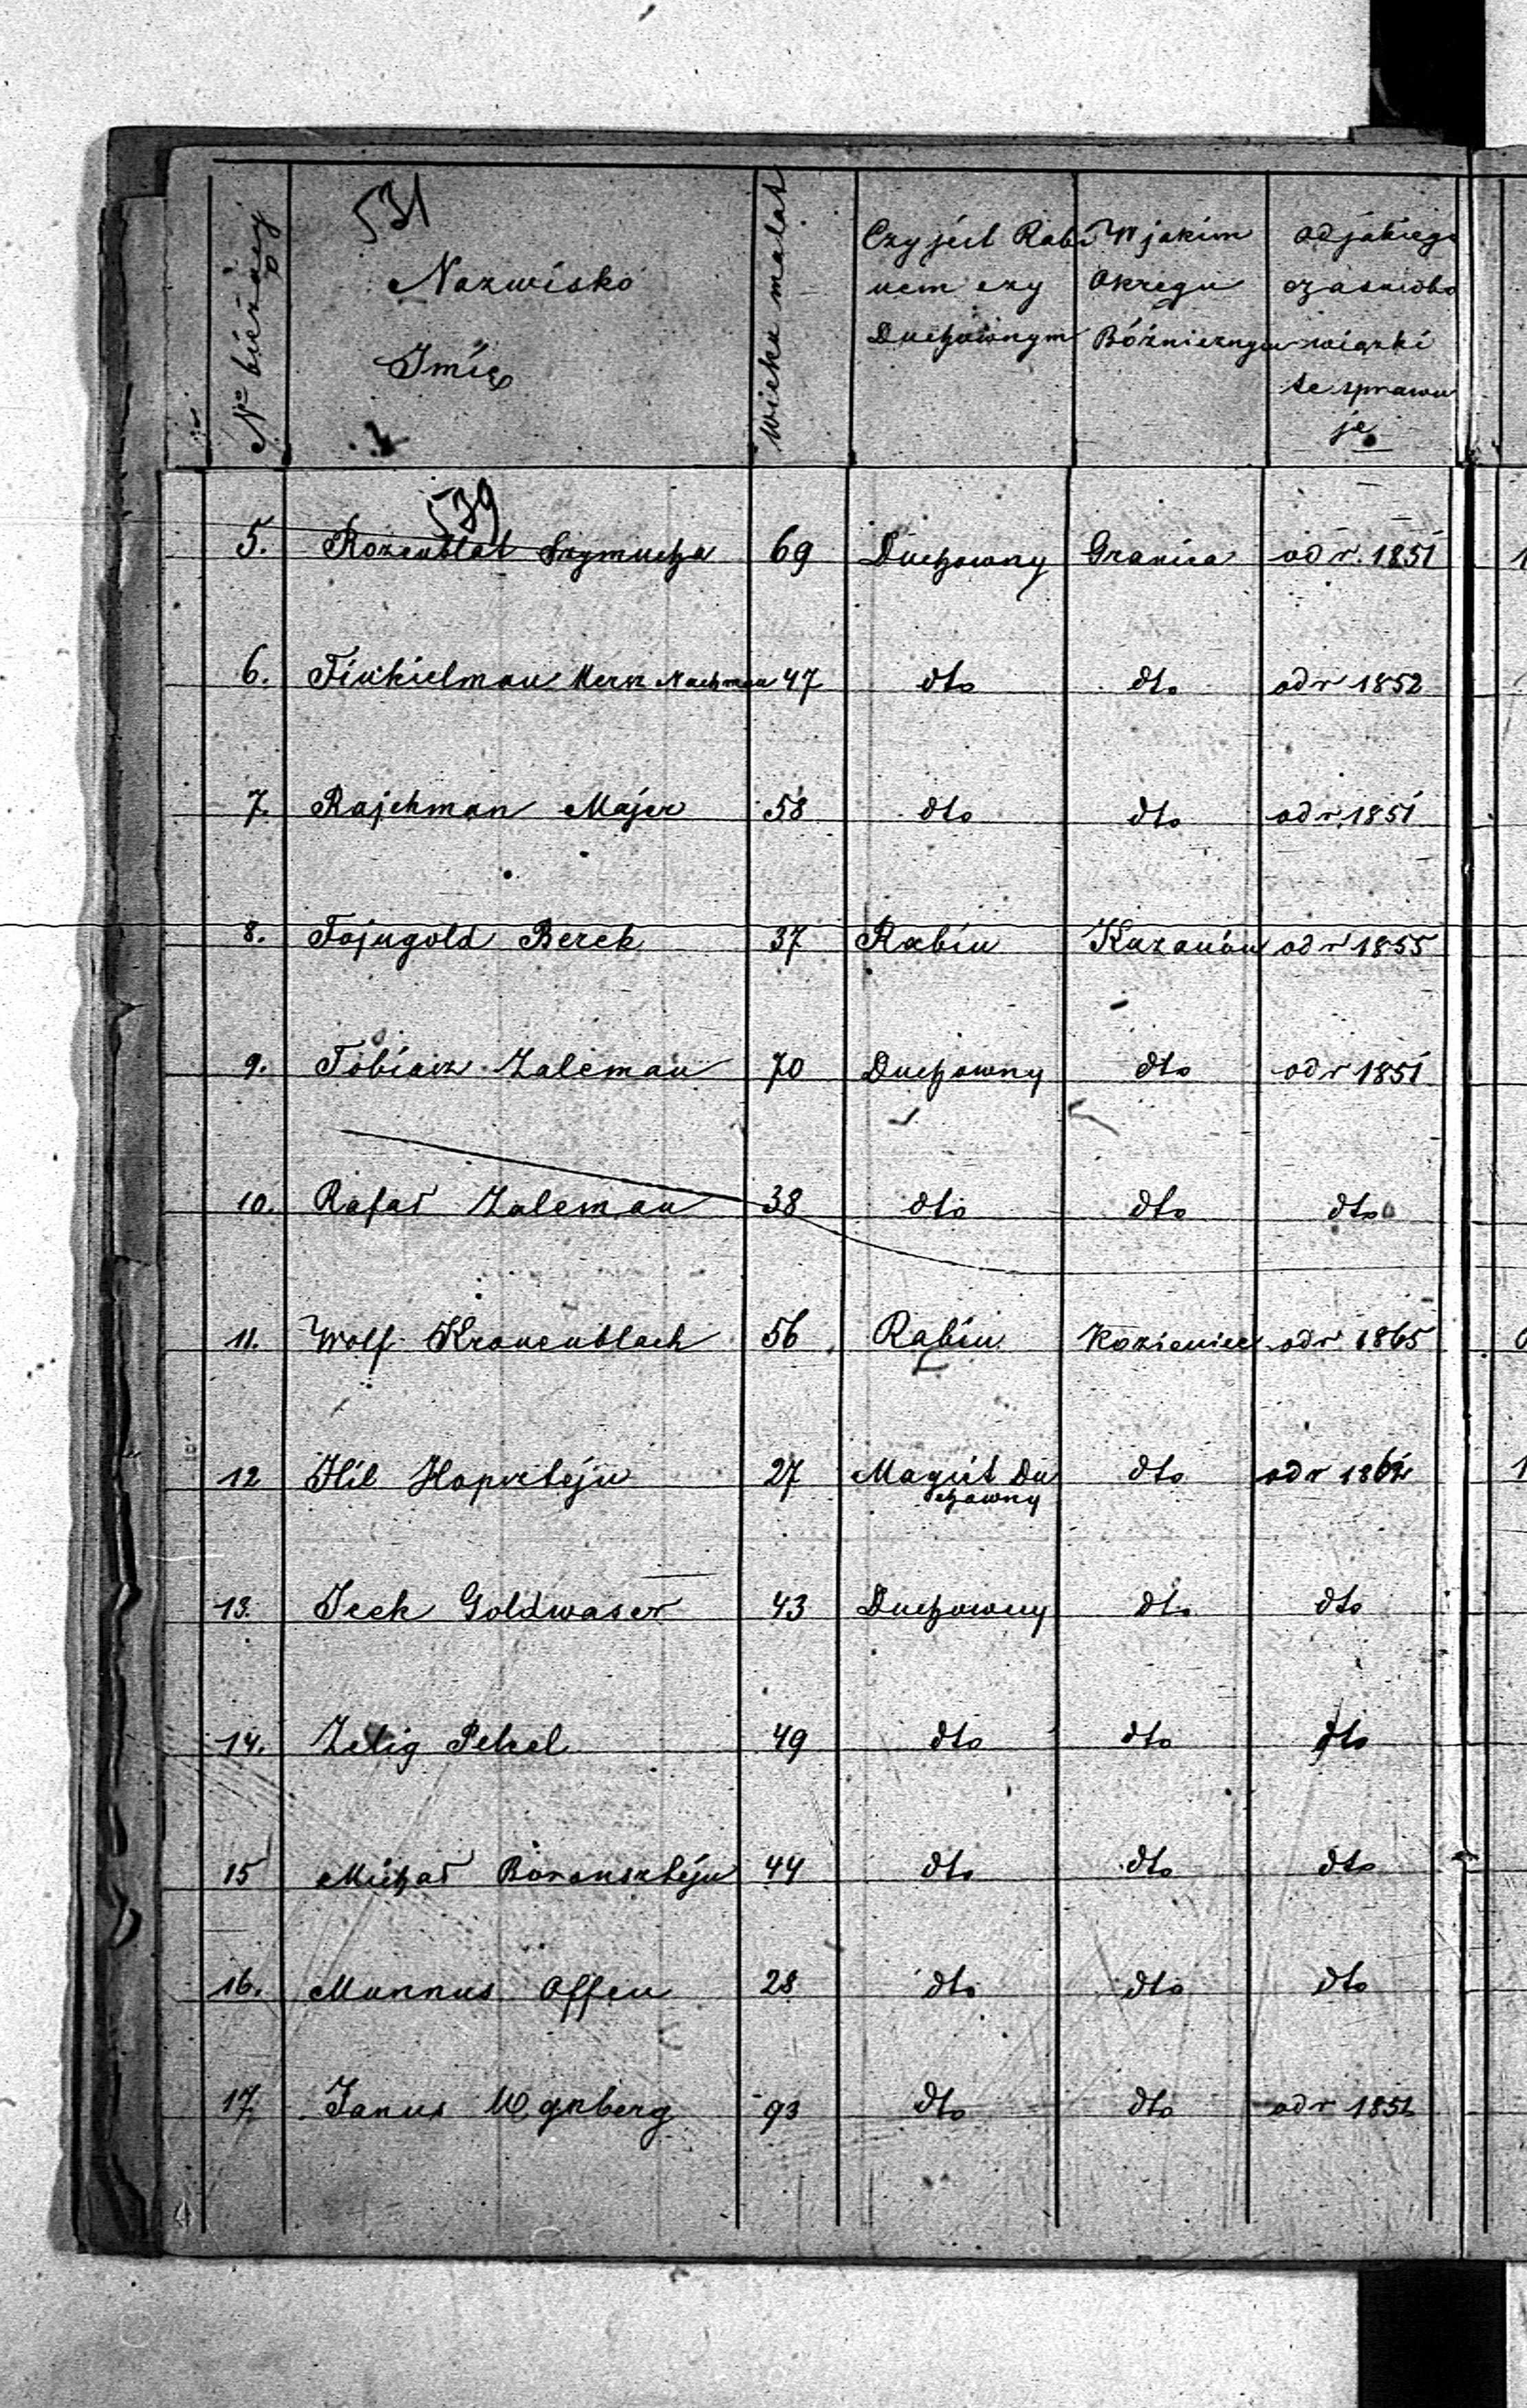 531
Nazwisko
Imię
№ bieżący
wieku ma lat
Czy jest Rabi
nem czy
Duchownym
W jakim
Okręgu
Bóżniczny
od jakiego
czasu obo
wiązki
te sprawu
je
539
5. Rozenblat Szymucha 69 Duchowny Granica od r. 1851
6. Finkielman Herz Nachman 47 dto dto od r 1852
7. Rajchman Majer 58 dto dto od r. 1851
8. Fajngold Berek 37 Rabin Kazanów od r 1855
9. Tobiasz Zaleman 70 Duchowny dto od r 1851
10. Rafał Zaleman 38 dto dto dto
11. Wolf Kronenblach 56 Rabin Kozienice od r. 1865
12 Hil Hopsztejn 27 Magist Du dto od r 1862
chowny
13. Icek Goldwaser 43 Duchowny dto dto
14. Zelig Pekel 49 dto dto dto
15 Michał Boransztejn 44 dto dto dto
16. Munnus Offen 28 dto dto dto
17. Janus Wajnberg 93 dto dto od r 1852